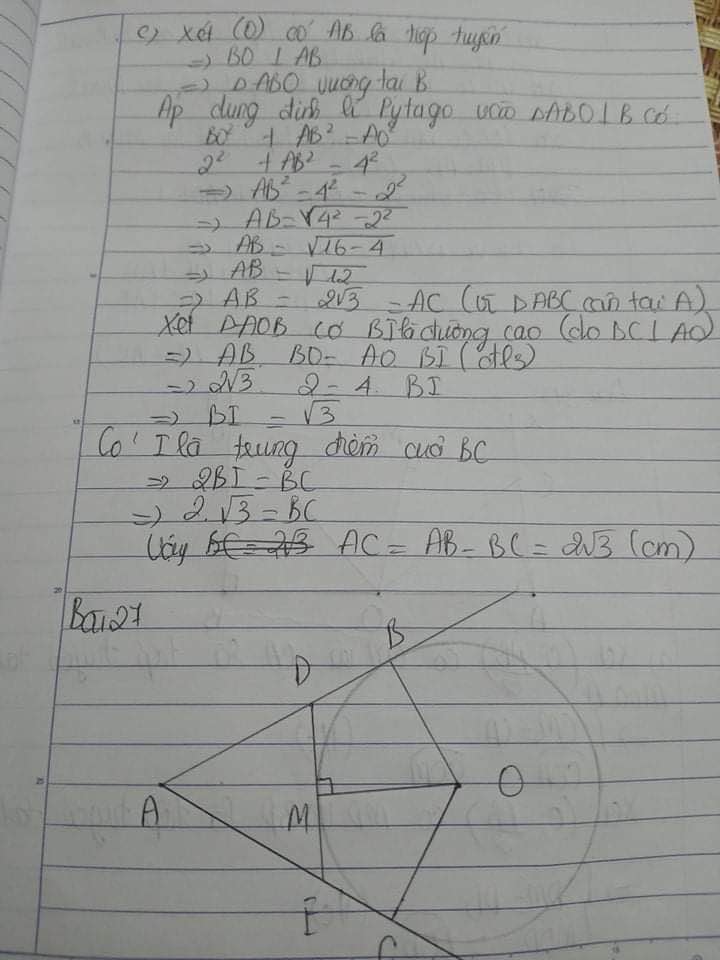 c) Xét (O) có AB là tiếp tuyến
=> BO ⊥ AB
=> ΔABO vuông tại B
Áp dụng định lí Pytago vào ΔABO ⊥ B có
BO² + AB² = AO²
2² + AB² = 4²
=> AB² = 4² - 2²
=> AB = √4² - 2²
=> AB = √16 - 4
=> AB = √12
=> AB = 2√3 = AC (vì ΔABC cân tại A)
Xét ΔAOB có BI là đường cao (do BC ⊥ AO)
=> AB. BO = AO. BI (đl3)
=> 2√3. 2 = 4. BI
=> BI = √3
Có I là trung điểm của BC
=> 2BI = BC
=> 2.√3 = BC
Vậy BC = 2√3 AC = AB = BC = 2√3 (cm)
Bài 27
B
D
O
A
M
E
C